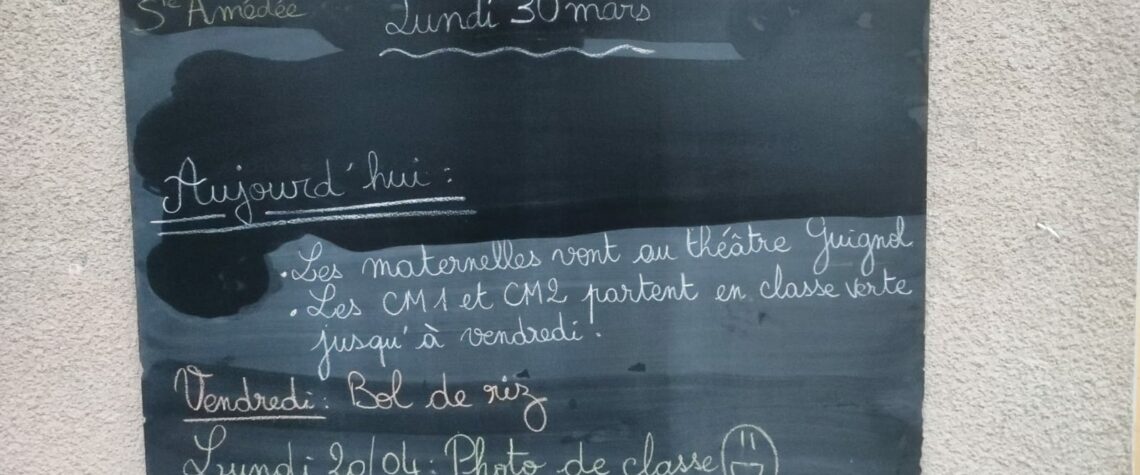 Ste Amédée
Lundi 30 mars
Aujourd'hui :
. Les maternelles vont au théâtre Guignol
. Les CM1 et CM2 partent en classe verte
jusqu'à vendredi.
Vendredi : Bol de riz
Lundi 20/04 : Photo de classe